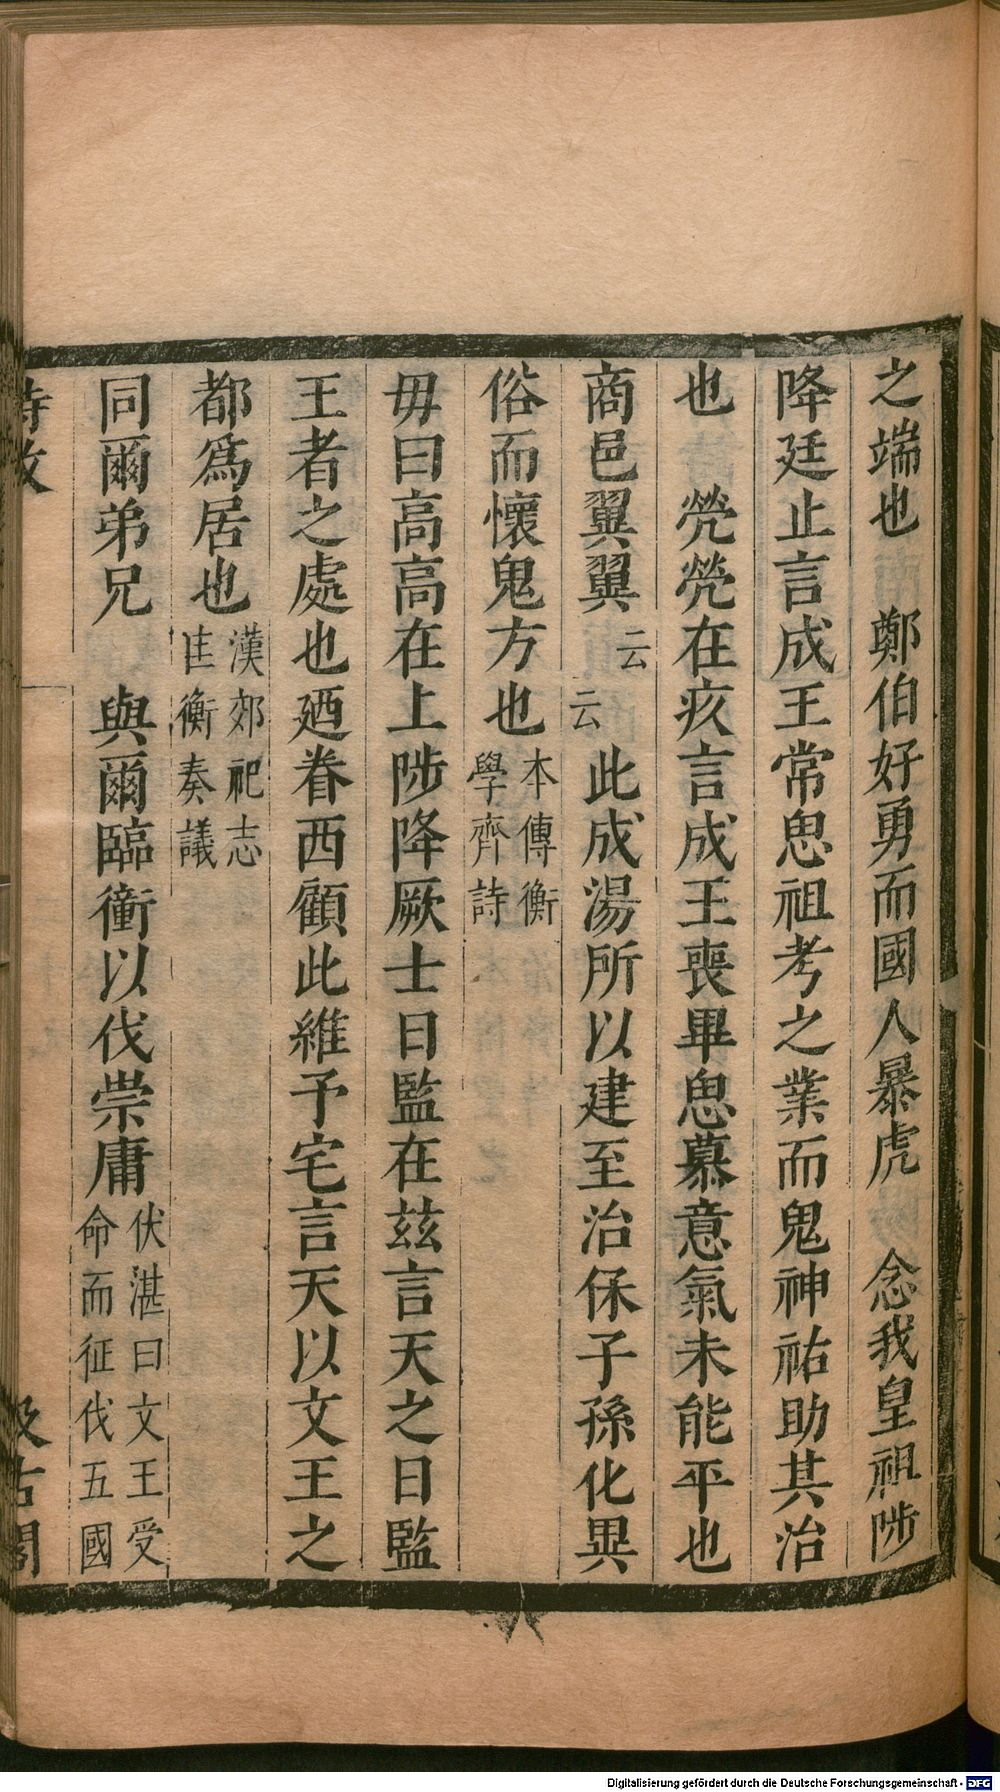 之端也　鄭伯好勇而國人暴虎　念我皇祖陟
降廷止言成王常思祖考之業而鬼神祐助其治
也　煢煢在疚言成王喪畢思慕意氣未能平也
商邑翼翼云云此成湯所以建至治保子孫化異
俗而懷鬼方也本傳衡學齊詩
毋曰高高在上陟降厥士日監在茲言天之日監
王者之處也廼眷西顧此維予宅言天以文王之
都為居也漢郊祀志匡衡奏議
同爾弟兄　與爾臨衝以伐崇庸伏湛曰文王受命而征伐五國
詩攷
汲古閣
Digitalisierung gefördert durch die Deutsche Forschungsgemeinschaft - DFG